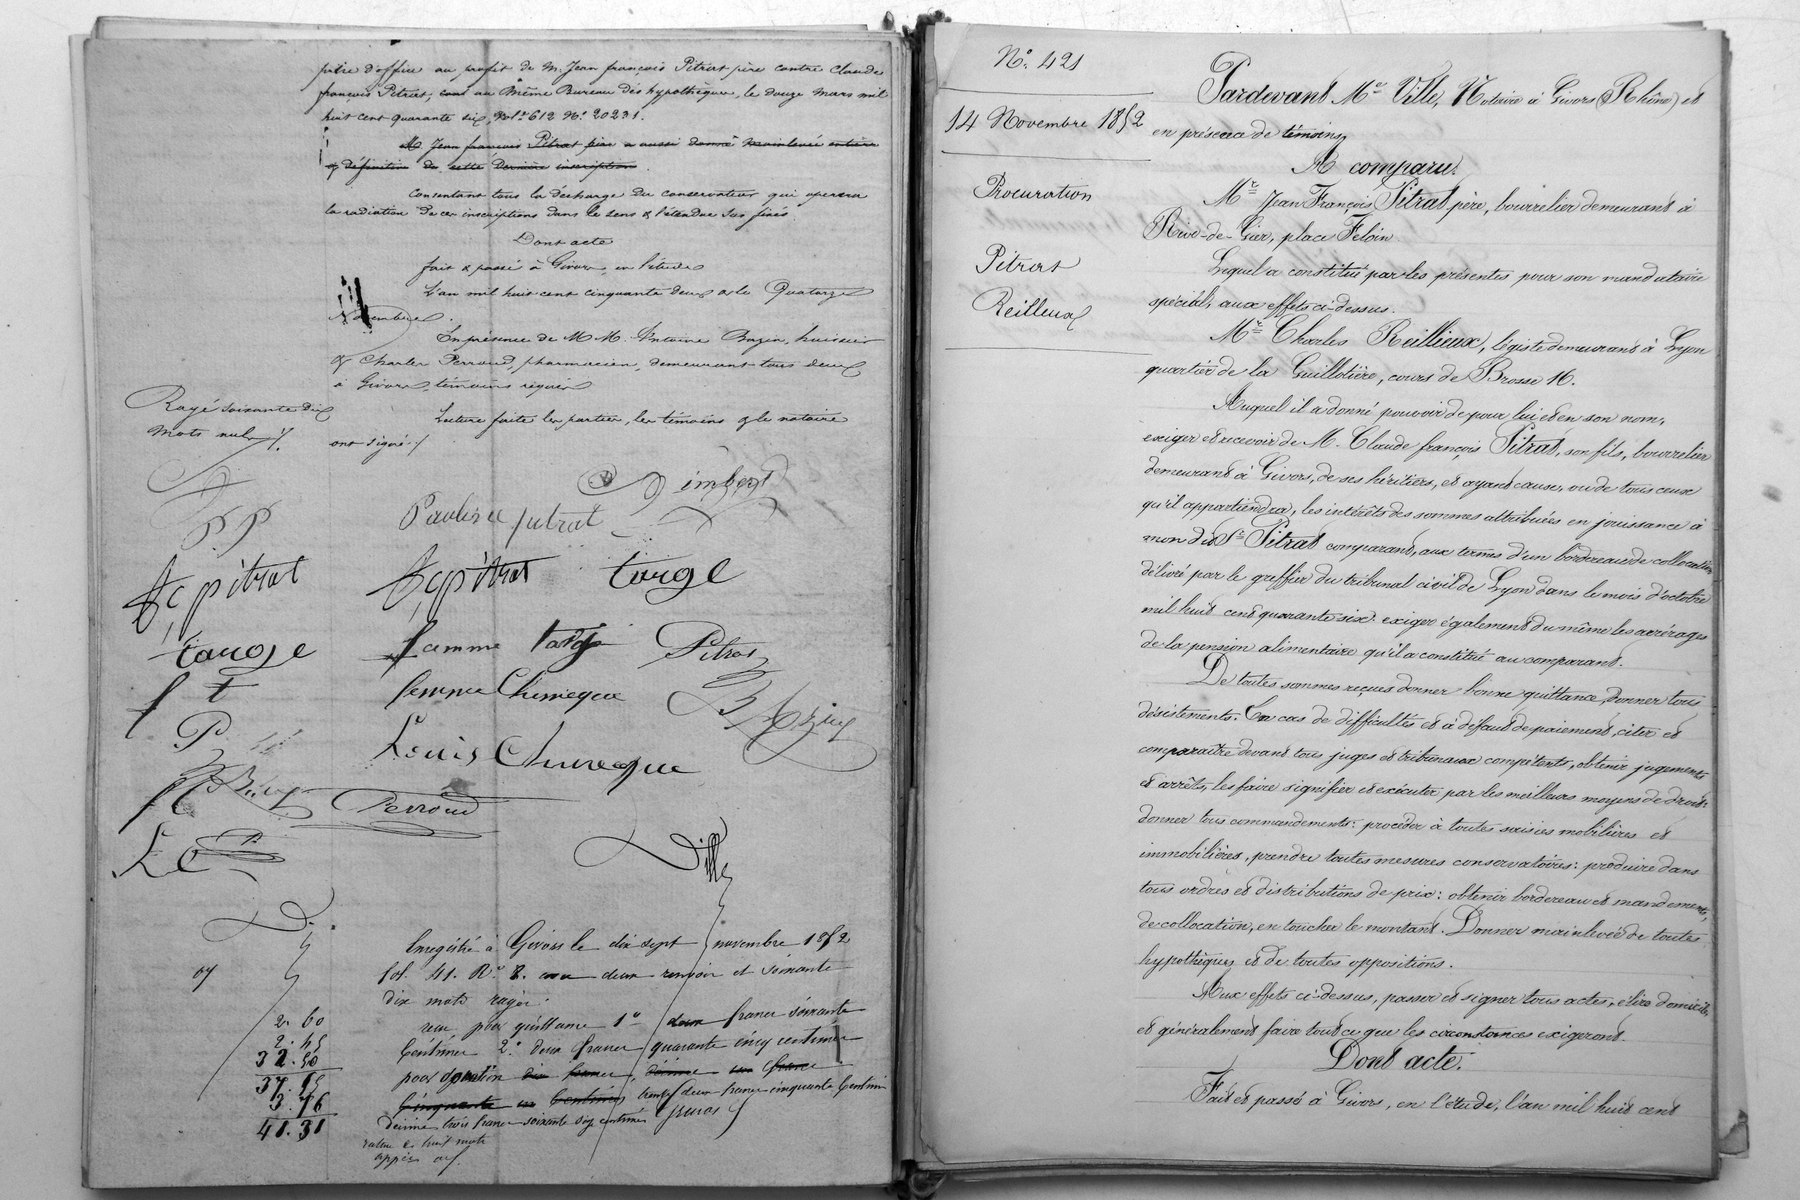 prise d'office au profit de M. Jean françois Pitrat père contre Claude
françois Pitrat, au même Bureau des hypothèques, le douze mars mil
huit cent quarante six, vol. 612 No. 20231.
M. Jean françois Pitrat père a aussi donné mainlevée entière
& définitive de cette dernière inscription.
Consentant tous la décharge du conservateur qui opérera
la radiation de ces inscriptions dans le sens & l'étendue sus fixés.
Dont acte
fait & passé à Givors, en l'étude
L'an mil huit cent cinquante deux & le Quatorze
Novembre.
En présence de M M. Antoine Bazin, huissier
& Charles Perroud, pharmacien, demeurant tous deux
à Givors, témoins requis
Lecture faite les parties, les témoins & le notaire
ont signé ./.
Rayé soixante dix
mots nuls ./.
P P
Pauline pitrat
pitrat
pitrat
targe
targe
femme targe
Pitrat
f t
femme Chuneque
P
Louis Chuneque
Perroud
L C
Ville
Enregistré à Givors le dix sept novembre 1852
fol. 41. Ro. 8. deux renvois et soixante
dix mots rayés.
reçu, pour quittance 1o deux francs soixante
centimes 2o deux francs quarante cinq centimes
pour trente deux francs cinquante centimes
décime trois francs soixante seize centimes
2. 60
2. 45
32. 50
37. 55
3. 76
41. 31
No. 421
14 Novembre 1852
Procuration
Pitrat
Reillieux
Pardevant Me Ville, Notaire à Givors (Rhône) et
en présence de témoins,
A comparu.
Mr Jean François Pitrat père, bourrelier demeurant à
Rive-de-Gier, place Feloin.
Lequel a constitué par les présentes pour son mandataire
spécial, aux effets ci-dessus.
Mr Charles Reillieux, légiste demeurant à Lyon
quartier de la Guillotière, cours de Brosse 16.
Auquel il a donné pouvoir de pour lui et en son nom,
exiger et recevoir de M. Claude françois Pitrat, son fils, bourrelier
demeurant à Givors, de ses héritiers, et ayant cause, ou de tous ceux
qu'il appartiendra, les intérêts des sommes attribuées en jouissance à
mon dit Sr Pitrat comparant, aux termes d'un bordereau de collocation
délivré par le greffier du tribunal civil de Lyon dans le mois d'octobre
mil huit cent quarante six: exiger également du même les arrérages
de la pension alimentaire qu'il a constitué au comparant.
De toutes sommes reçues donner bonne quittance, donner tous
désistements. En cas de difficultés et à défaut de paiement, citer et
comparaître devant tous juges et tribunaux compétents, obtenir jugements
et arrêts, les faire signifier et exécuter par les meilleurs moyens de droit:
donner tous commandements: procéder à toutes saisies mobilières et
immobilières, prendre toutes mesures conservatoires: produire dans
tous ordres et distributions de prix: obtenir bordereau et mandements,
de collocation, en toucher le montant. Donner mainlevée de toutes
hypothèques et de toutes oppositions.
Aux effets ci-dessus, passer et signer tous actes, élire domicile,
et généralement faire tout ce que les circonstances exigeront.
Dont acte.
Fait et passé à Givors, en l'étude, l'an mil huit cent